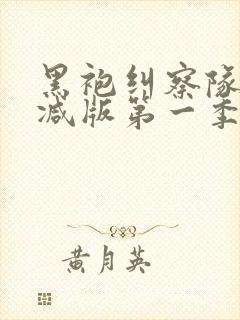 黑袍纠察队
减版第一季
黄月英